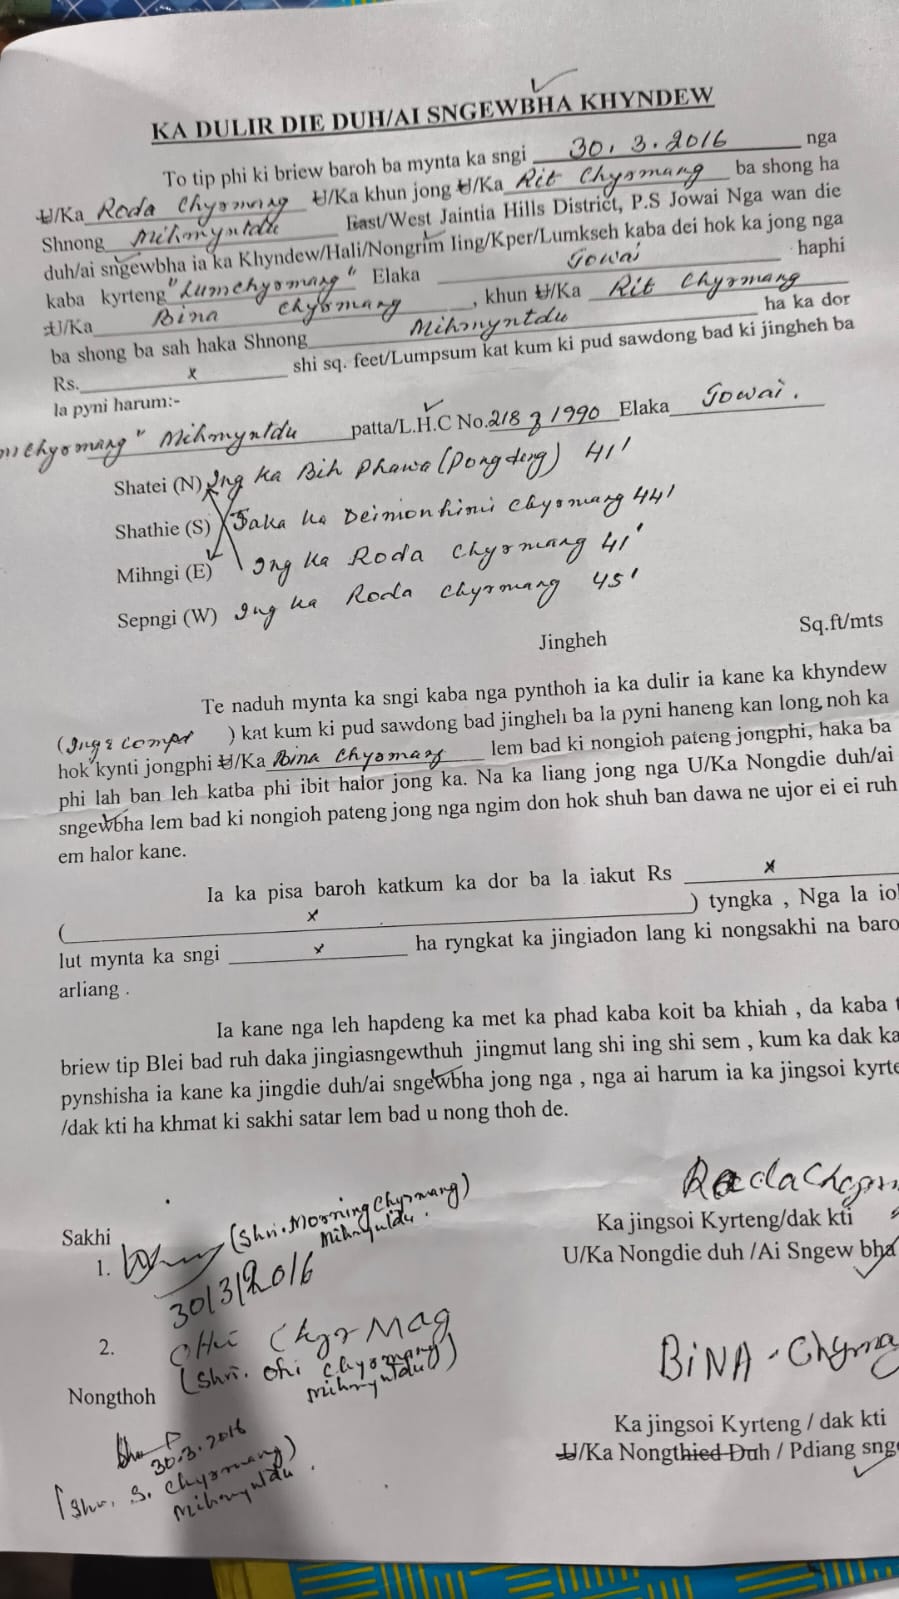 KA DULIR DIE DUH/AI SNGEWBHA KHYNDEW
To tip phi ki briew baroh ba mynta ka sngi 30.3.2016 nga
U/Ka Roda Chyrmang U/Ka khun jong U/Ka Rit Chyrmang ba shong ha
Shnong Mihmyntdu East/West Jaintia Hills District, P.S Jowai Nga wan die
duh/ai sngewbha ia ka Khyndew/Hali/Nongrim Iing/Kper/Lumkseh kaba dei hok ka jong nga
kaba kyrteng "Lumchyrmang" Elaka Jowai haphi
U/Ka Bina Chyrmang, khun U/Ka Rit Chyrmang
ba shong ba sah haka Shnong Mihmyntdu ha ka dor
Rs. x shi sq. feet/Lumpsum kat kum ki pud sawdong bad ki jingheh ba
la pyni harum:-
mchyrmang" Mihmyntdu patta/L.H.C No. 218 of 1990 Elaka Jowai.
Shatei (N) Ing ka Bih Phawa (Pongdeng) 41'
Shathie (S) Jaka ka Chyrmang 44'
Mihngi (E) Ing ka Roda Chyrmang 41'
Sepngi (W) Ing ka Roda Chyrmang 45'
Jingheh Sq.ft/mts
Te naduh mynta ka sngi kaba nga pynthoh ia ka dulir ia kane ka khyndew
(Ing & compd) kat kum ki pud sawdong bad jingheh ba la pyni haneng kan long noh ka
hok kynti jongphi U/Ka Bina Chyrmang lem bad ki nongioh pateng jongphi, haka ba
phi lah ban leh katba phi ibit halor jong ka. Na ka liang jong nga U/Ka Nongdie duh/ai
sngewbha lem bad ki nongioh pateng jong nga ngim don hok shuh ban dawa ne ujor ei ei ruh
em halor kane.
Ia ka pisa baroh katkum ka dor ba la iakut Rs x
( x ) tyngka , Nga la io
lut mynta ka sngi x ha ryngkat ka jingiadon lang ki nongsakhi na baro
arliang .
Ia kane nga leh hapdeng ka met ka phad kaba koit ba khiah , da kaba t
briew tip Blei bad ruh daka jingiasngewthuh jingmut lang shi ing shi sem , kum ka dak ka
pynshisha ia kane ka jingdie duh/ai sngewbha jong nga , nga ai harum ia ka jingsoi kyrte
/dak kti ha khmat ki sakhi satar lem bad u nong thoh de.
Roda Chyrm
Ka jingsoi Kyrteng/dak kti
U/Ka Nongdie duh /Ai Sngew bha
Sakhi
1. (Shri. Morning Chyrmang)
Mihmyntdu.
30/3/2016
2. OHi ChyrMag
(Shri. Ohi Chyrmang)
Mihmyntdu
BiNA - Chyrma
Ka jingsoi Kyrteng / dak kti
U/Ka Nongthied Duh / Pdiang sng
Nongthoh
30.3.2016
(Shri. S. Chyrmang)
Mihmyntdu.